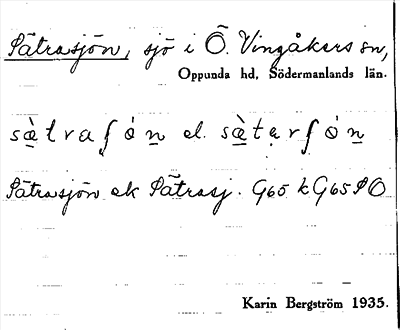 Sätrasjön, sjö i Ö. Vingåkers sn,
Oppunda hd, Södermanlands län.
sæ̀traʃón el. sæ̀tərʃón
Sätrasjön ek Sätrasj. G65 k G65 SO
Karin Bergström 1935.